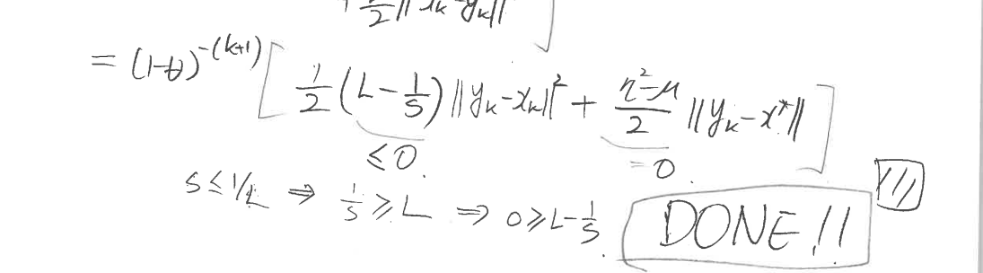 = (1-θ)^{-(k+1)} [ \frac{1}{2}(L-\frac{1}{s})||y_k-x_k||^2 + \frac{η^2-μ}{2} ||y_k-x^*|| ]
≤0. =0.
s≤1/L ⇒ \frac{1}{s}≥L ⇒ 0≥L-\frac{1}{s}. DONE!!